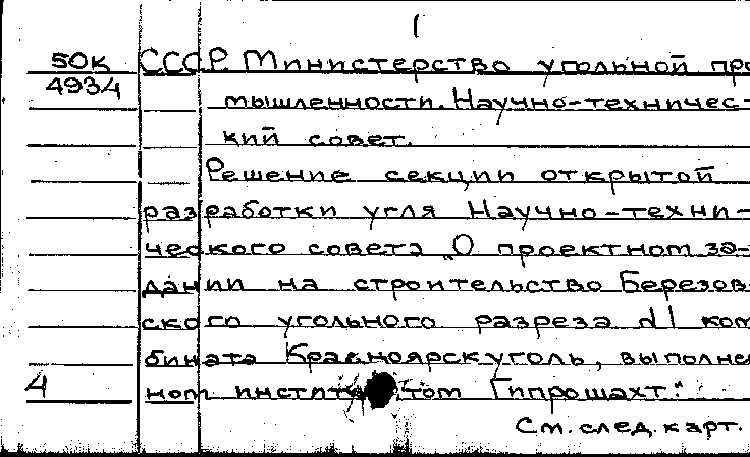 1
50К
4934
СССР. Министерство угольной про
мышленности. Научно-техничес-
кий совет.
Решение секции открытой
разработки угля Научно-техни-
ческого совета „О проектном за-
дании на строительство Березов
ского угольного разреза №1 ком
бината Красноярскуголь, выполне
4
ном институтом Гипрошахт."
См. след. карт.